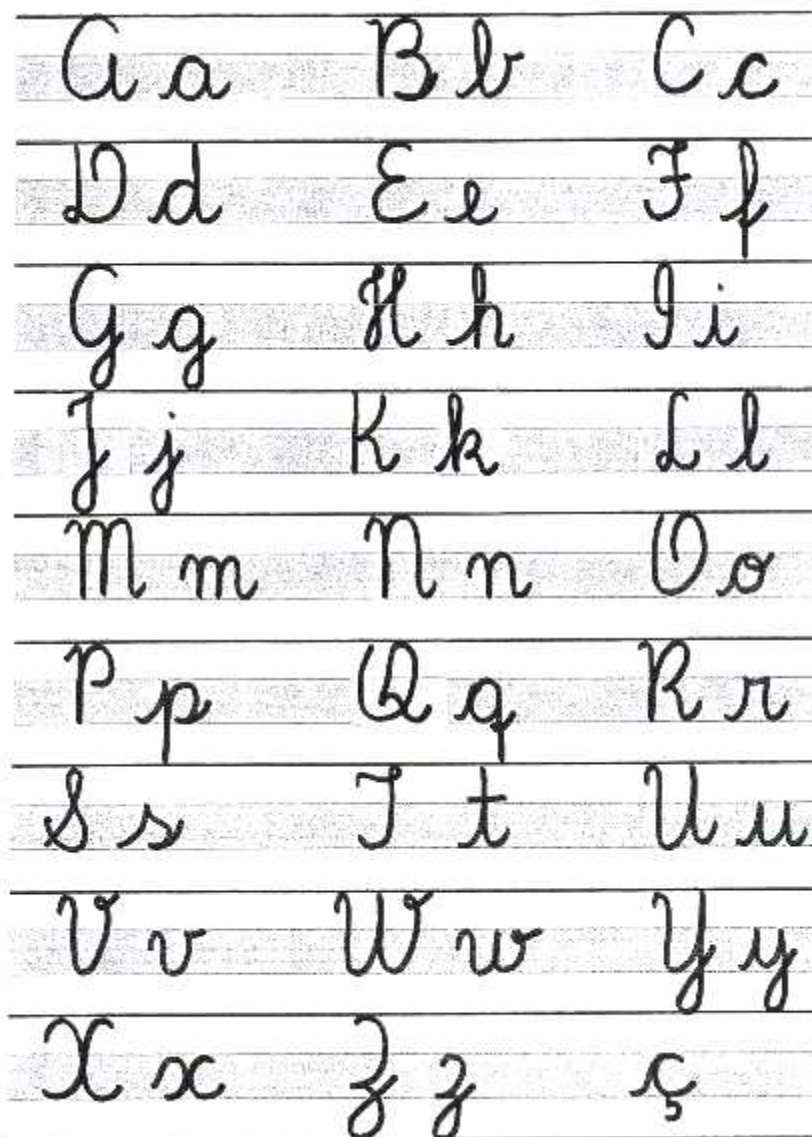 A a B b C c
D d E e F f
G g H h I i
J j K k L l
M m N n O o
P p Q q R r
S s T t U u
V v W w Y y
X x Z z ç